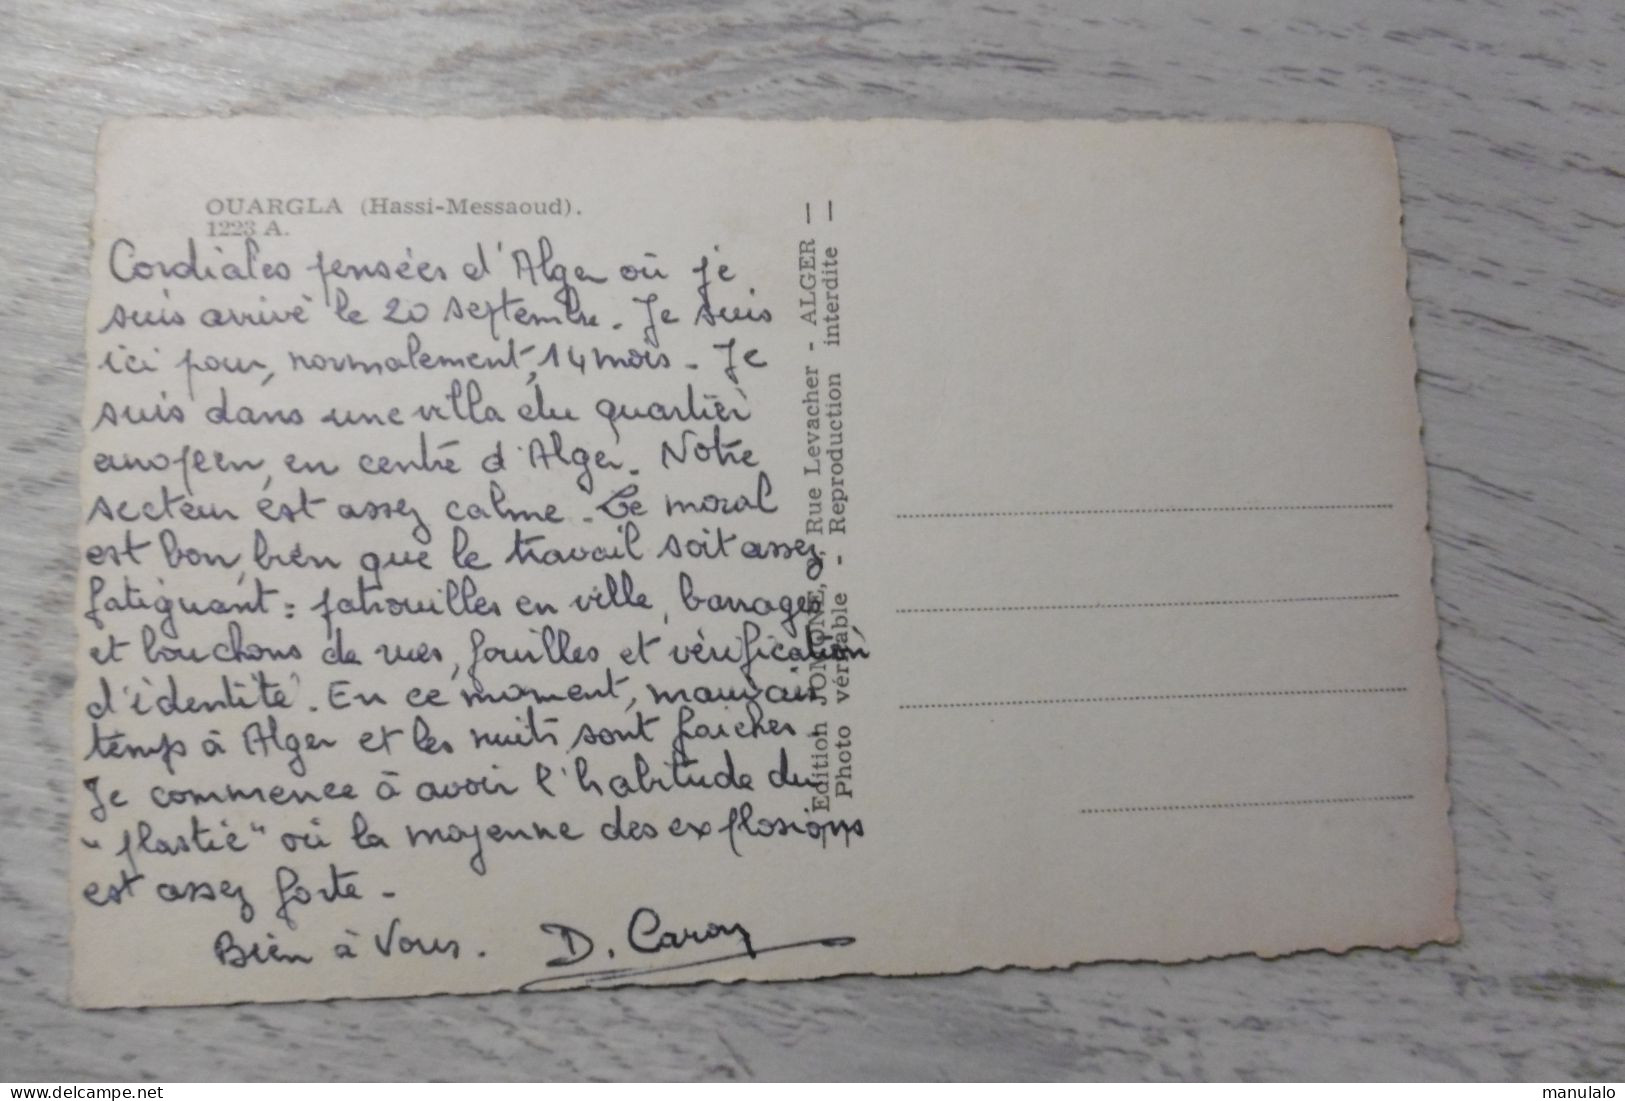 OUARGLA (Hassi-Messaoud).
1223 A.
Cordiales pensées d'Alger où je
suis arrivé le 20 septembre. Je suis
ici pour, normalement, 14 mois. Je
suis dans une villa du quartier
européen, en centre d'Alger. Notre
secteur est assez calme. Le moral
est bon, bien que le travail soit assez
fatiguant : patrouilles en ville, barrages
et bouchons de rues, fouilles et vérification
d'identité. En ce moment, mauvais
temps à Alger et les nuits sont fraiches.
Je commence à avoir l'habitude du
"plastic" où la moyenne des explosions
est assez forte.
Bien à Vous. D. Caron
— Edition JOMONE, Rue Levacher - ALGER —
— Photo véritable - Reproduction interdite —
delcampe.net
manulalo